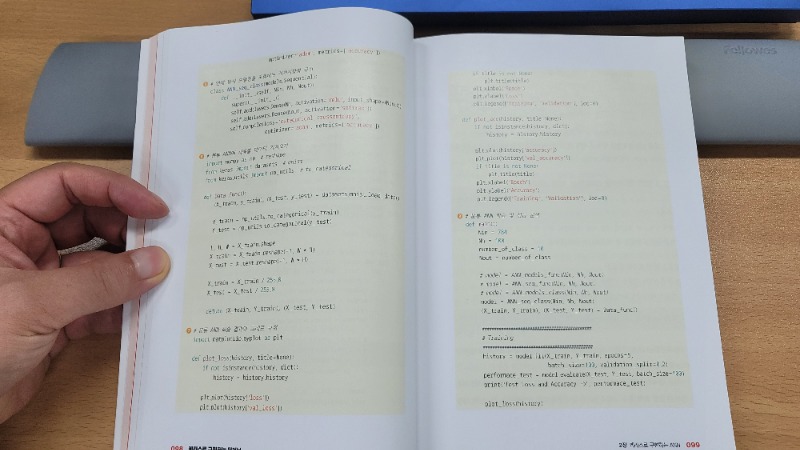 optimizer='adam', metrics=['accuracy'])
class ANN_seq_class(models.Sequential):
def __init__(self, Nin, Nh, Nout):
super().__init__()
self.add(layers.Dense(Nh, activation='relu', input_shape=(Nin,)))
self.add(layers.Dense(Nout, activation='softmax'))
self.compile(loss='categorical_crossentropy',
optimizer='adam', metrics=['accuracy'])
import numpy as np
from keras import datasets # mnist
from keras.utils import np_utils # to_categorical
def data_func():
(X_train, y_train), (X_test, y_test) = datasets.mnist.load_data()
Y_train = np_utils.to_categorical(y_train)
Y_test = np_utils.to_categorical(y_test)
L, W, H = X_train.shape
X_train = X_train.reshape(-1, W * H)
X_test = X_test.reshape(-1, W * H)
X_train = X_train / 255.0
X_test = X_test / 255.0
return (X_train, Y_train), (X_test, Y_test)
import matplotlib.pyplot as plt
def plot_loss(history, title=None):
if not isinstance(history, dict):
history = history.history
plt.plot(history['loss'])
plt.plot(history['val_loss'])
098
if title is not None:
plt.title(title)
plt.xlabel('Epoch')
plt.ylabel('Loss')
plt.legend(['Training', 'Validation'], loc=0)
def plot_acc(history, title=None):
if not isinstance(history, dict):
history = history.history
plt.plot(history['accuracy'])
plt.plot(history['val_accuracy'])
if title is not None:
plt.title(title)
plt.xlabel('Epoch')
plt.ylabel('Accuracy')
plt.legend(['Training', 'Validation'], loc=0)
def main():
Nin = 784
Nh = 100
number_of_class = 10
Nout = number_of_class
# model = ANN_models_func(Nin, Nh, Nout)
# model = ANN_seq_func(Nin, Nh, Nout)
# model = ANN_models_class(Nin, Nh, Nout)
model = ANN_seq_class(Nin, Nh, Nout)
(X_train, Y_train), (X_test, Y_test) = data_func()
# Training
history = model.fit(X_train, Y_train, epochs=5,
batch_size=100, validation_split=0.2)
performance_test = model.evaluate(X_test, Y_test, batch_size=100)
print('Test Loss and Accuracy ->', performance_test)
plot_loss(history)
099
Fellowes